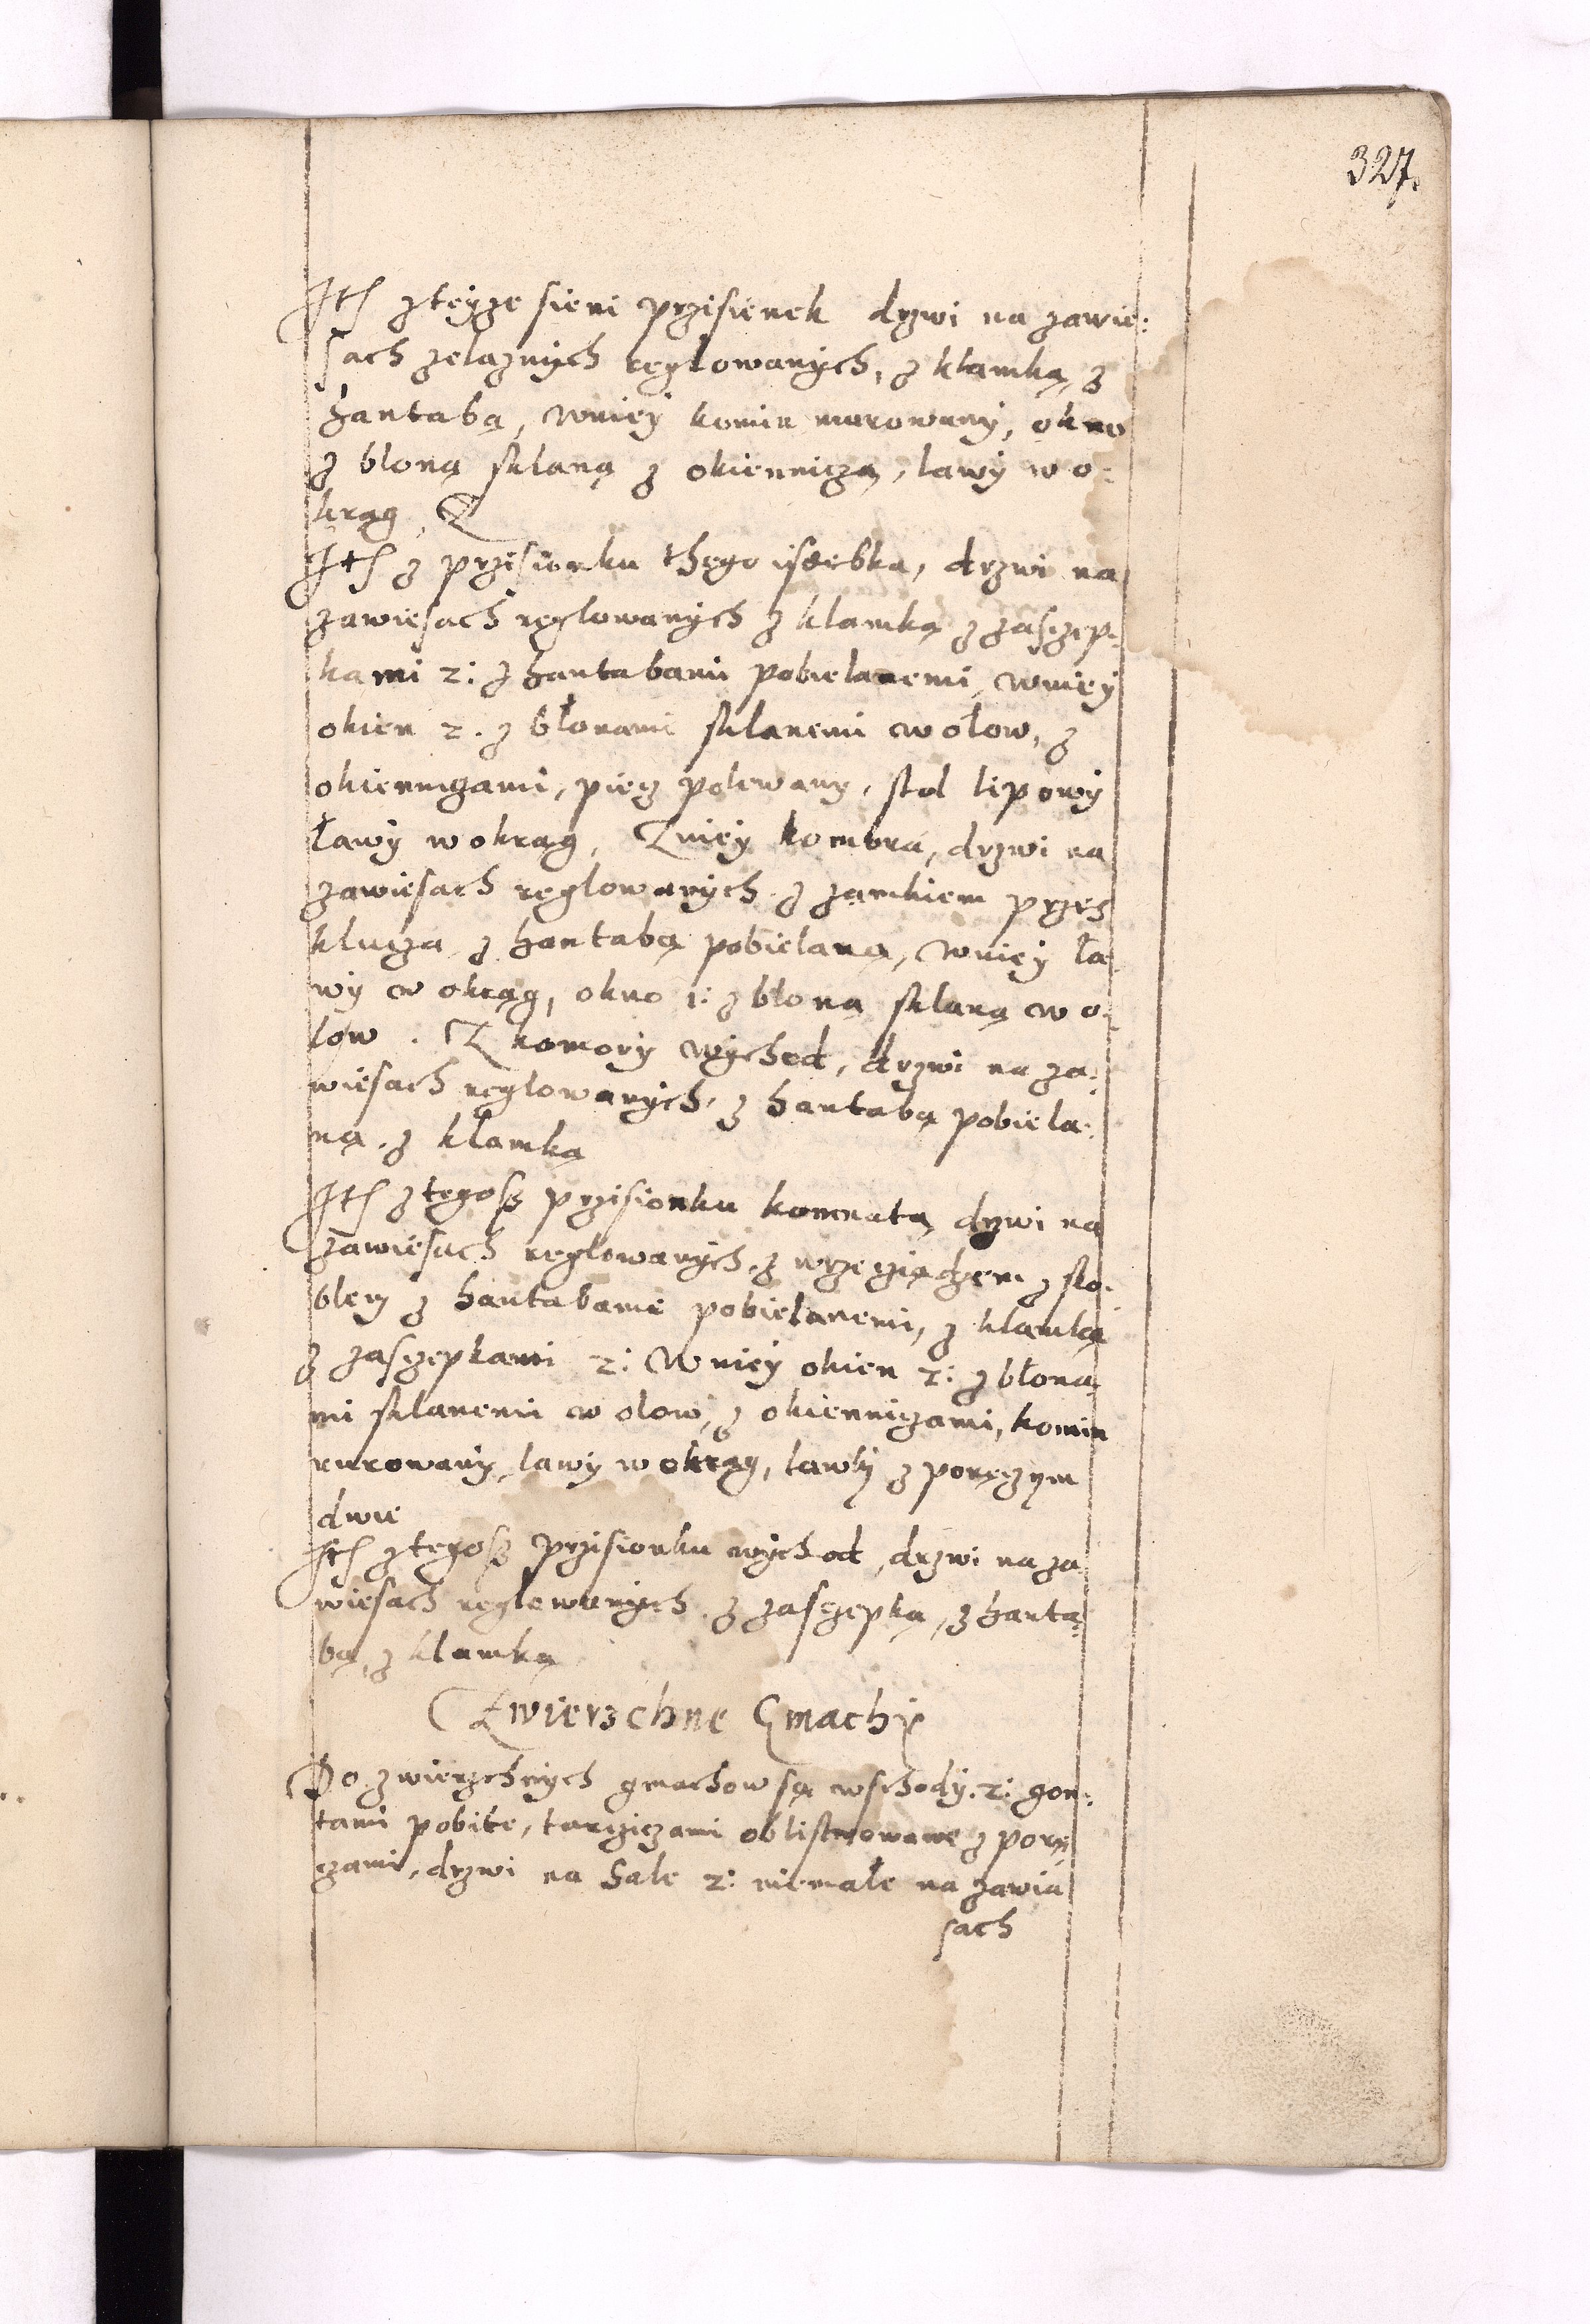 327.
Itē z teyze sieni przisienek drzwi na zawie:
sach zelaznych reglowanych, z klamką, z
hantabą, wniey komin murowany, okno
z bloną sklaną z okienniczą, lawy wo:
krąg.
Itē z przisionku thego isdebka, drzwi na
zawiesach reglowanych z klamką z zasczep:
kami 2: z hantabami pobielanemi, wniey
okien 2. z błonami sklanemi w ołow, z
okiennizami, piecz polewany, stol lipowy
ławy wokrąg, Zniey komora, drzwi na
zawiesach reglowanych z zamkiem przes
klucza z hantabą pobielaną, wniey ła
wy w okrąg, okno 1: z bloną sklaną w o:
low. Z komory wychod, drzwi na za:
wiesach reglowanych, z hantabą pobiela:
ną, z kłamką
Itē z tegosz przisionku komnata, drzwi na
zawiesach reglowanych, z wrzeciądzem z sko:
blem z hantabami pobielanemi, z klamką
z zasczepkami 2: Wniey okien 2: z błona
mi sklanemi w olow, z okiennizami, komin
rurowany, lawy wokrąg, lawki z poręczym
dwie
Itē z tegosz przisionku wychod, drzwi na za
wiesach reglowanych, z zasczepką, z hanta:
bą, z klamką
Zwierzchne Gmachy
Do zwierzchnych gmachow są wschody. 2: gon:
tami pobite, tarcziczami oblistwowane z porę
czami, drzwi na Sale 2: niemałe na zawia
sach